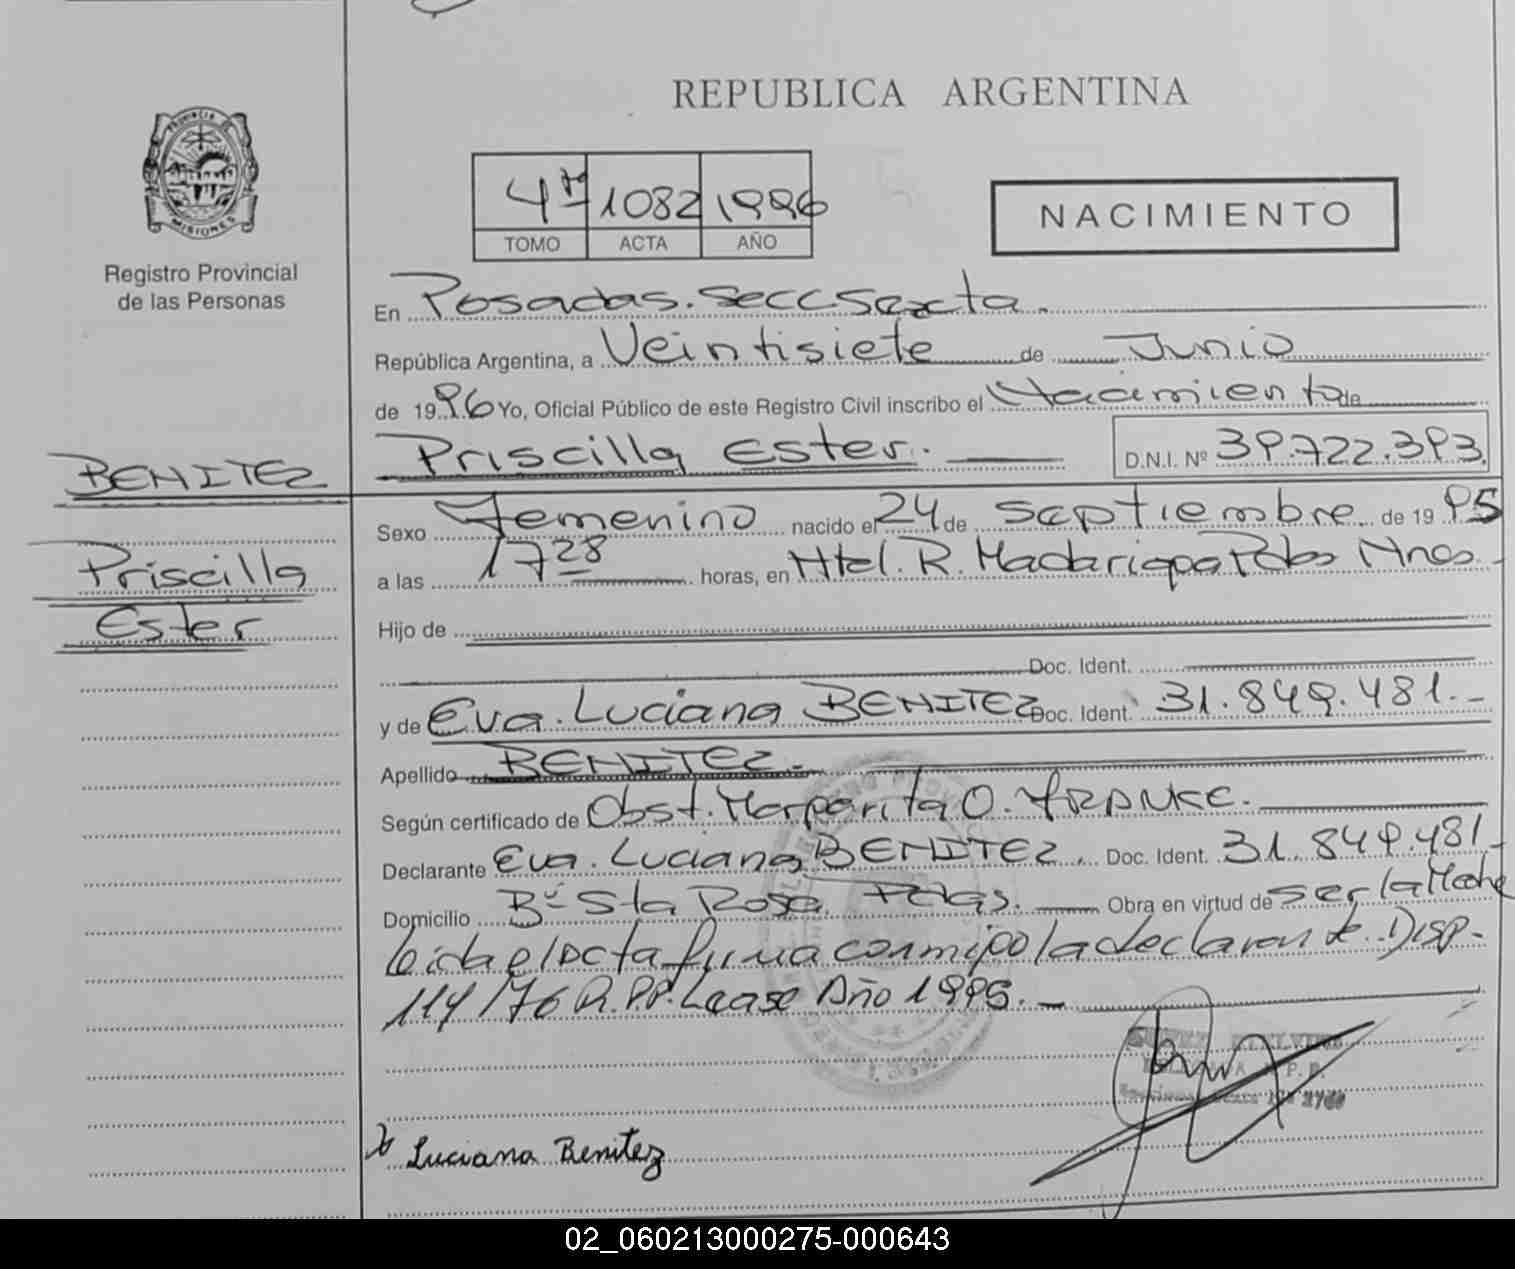 REPUBLICA ARGENTINA
PROVINCIA DE
MISIONES
Registro Provincial
de las Personas
4to 1082 1996
TOMO ACTA AÑO
NACIMIENTO
En Posadas. Secc Sexta.
República Argentina, a Veintisiete de Junio
de 1996 Yo, Oficial Público de este Registro Civil inscribo el Nacimiento de
Priscilla Ester.
D.N.I. Nº 39.722.393.
BENITEZ
Priscilla
Ester
Sexo Femenino nacido el 24 de Septiembre de 1995
a las 17 28 horas, en Htal. R. Madariaga Pdas Mnes.-
Hijo de
Doc. Ident.
y de Eva. Luciana BENITEZ Doc. Ident. 31.849.481.-
Apellido BENITEZ.-
Según certificado de Obst. Margarita O. FRANKE.
Declarante Eva. Luciana BENITEZ. Doc. Ident. 31.849.481-
Domicilio Bº Sta Rosa. Pdas. Obra en virtud de ser la Madre
leida el acta firma conmigo la declarante. Disp-
114/76 R.P.P. Lease Año 1995.-
Luciana Benitez
02_060213000275-000643